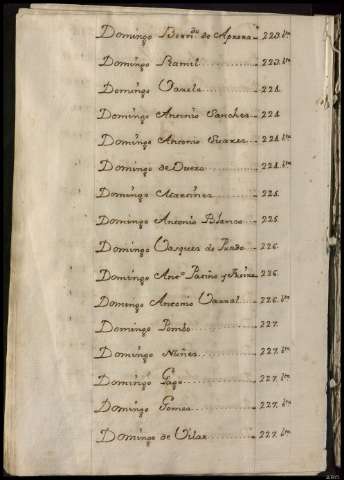 Domingo Bern.do de 223. b.ta
Domingo Ramil 223. b.ta
Domingo Varela 224.
Domingo Antonio Sanches 224.
Domingo Antonio Suarez 224. b.ta
Domingo de Ouzo 224. b.ta
Domingo Martines 225.
Domingo Antonio Blanco 225.
Domingo Vasques de Prado 226.
Domingo Ant.o Patiño y Freire 226.
Domingo Antonio Varral 226. b.ta
Domingo Pombo 227.
Domingo Nuñes 227. b.ta
Domingo Gago 227. b.ta
Domingo Gomea 227. b.ta
Domingo de Vilar 227. b.ta